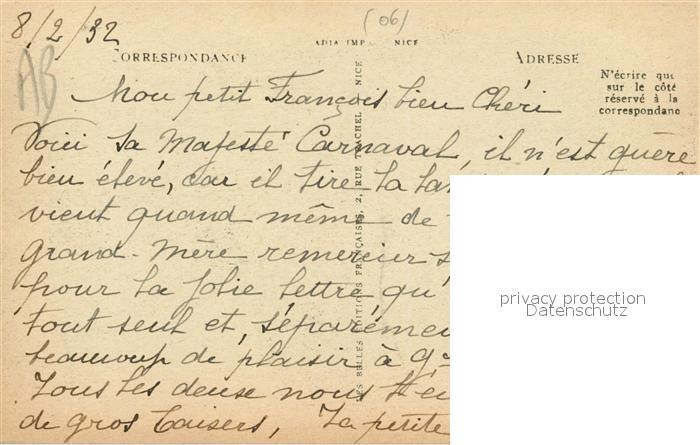 8/2/32
(06)
ADIA IMP NICE
CORRESPONDANCE
ADRESSE
AB
N'écrire que
sur le côté
réservé à la
correspondance
Mon petit François bien Chéri
Voici Sa Majesté Carnaval, il n'est guère
bien élevé, car il tire la lan
vient quand même de
grand-mère remercier
pour ta jolie lettre, qu'
tout seul et, séparément
beaucoup de plaisir à
Tous les deux nous
de gros baisers, Ta petite
LES BELLES EDITIONS FRANÇAISES, 2, RUE TRACHEL NICE
privacy protection
Datenschutz